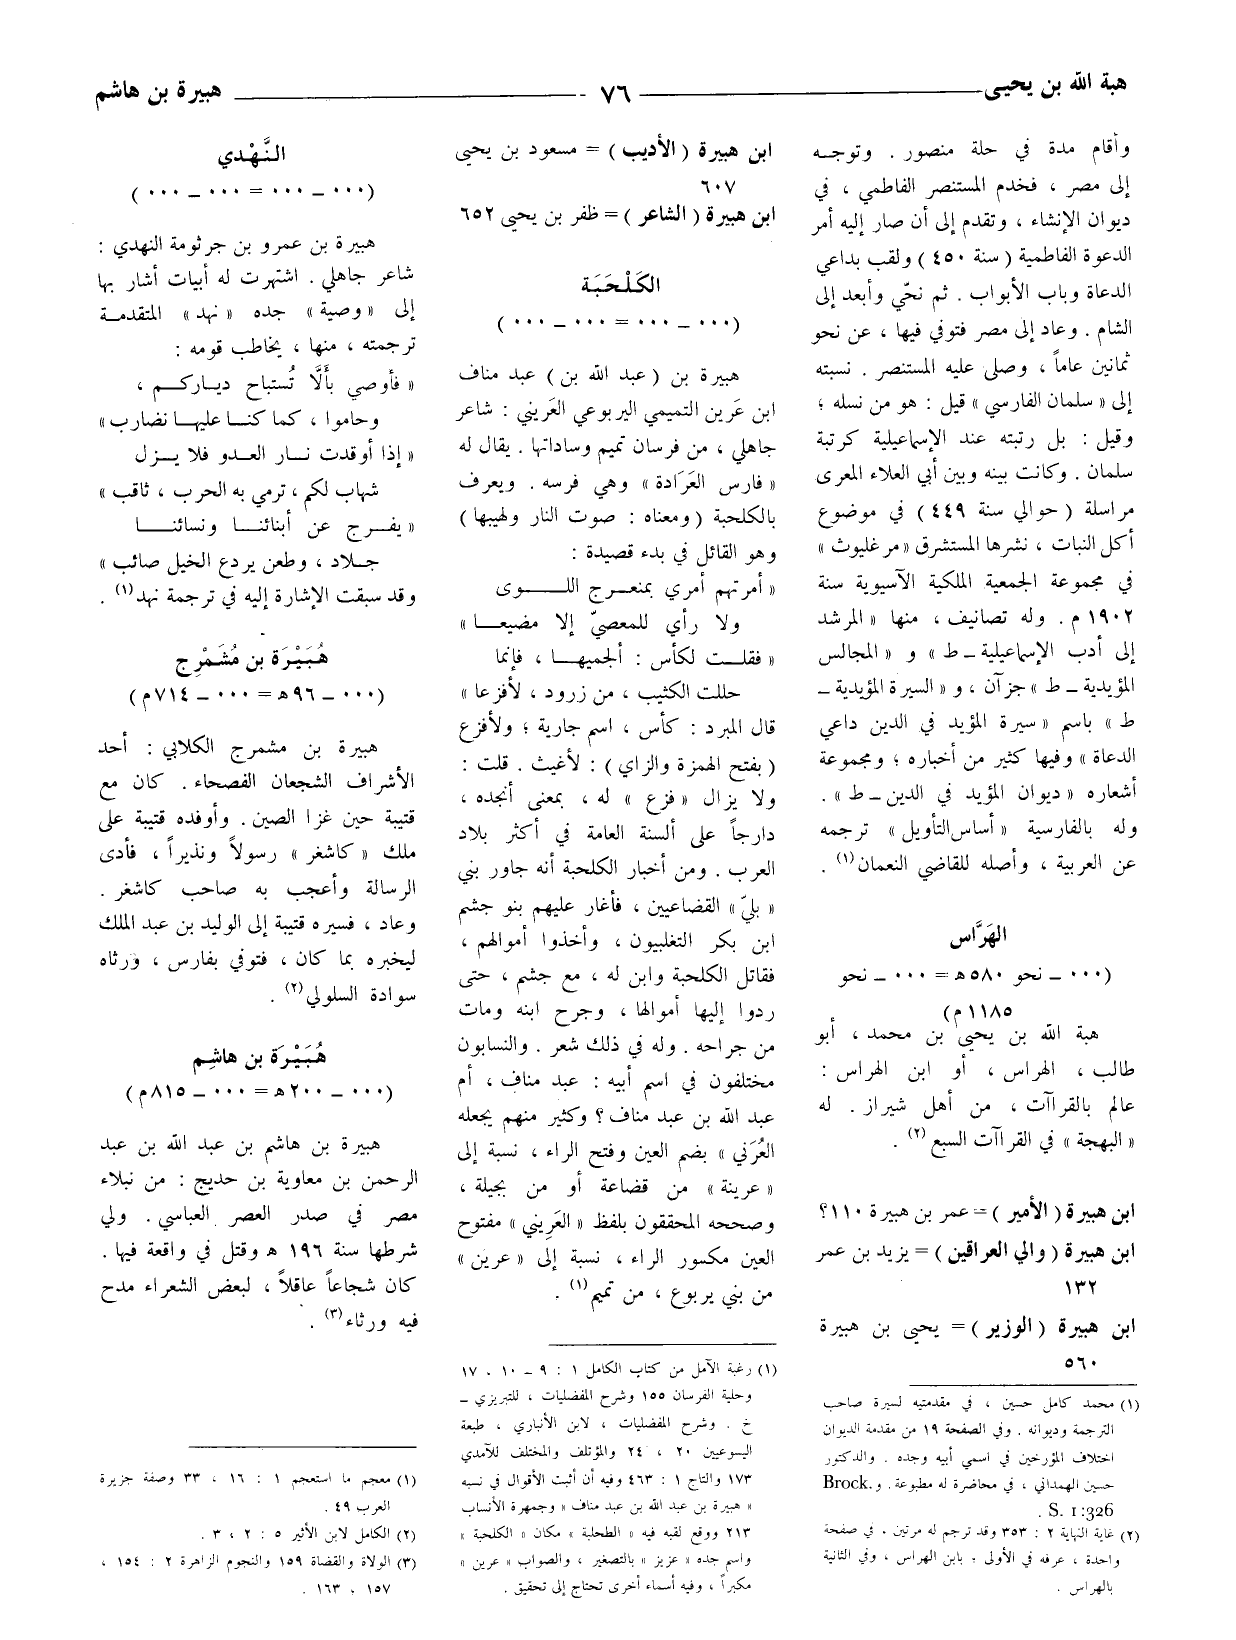 هبة الله بن يحيى
٧٦
هبيرة بن هاشم
وأقام مدة في حلة منصور . وتوجه
إلى مصر ، فخدم المستنصر الفاطمي ، في
ديوان الإنشاء ، وتقدم إلى أن صار إليه أمر
الدعوة الفاطمية ( سنة ٤٥٠ ) ولقب بداعي
الدعاة وباب الأبواب . ثم نحّي وأبعد إلى
الشام . وعاد إلى مصر فتوفي فيها ، عن نحو
ثمانين عاماً ، وصلى عليه المستنصر . نسبته
إلى « سلمان الفارسي » قيل : هو من نسله ؛
وقيل : بل رتبته عند الإسماعيلية كرتبة
سلمان . وكانت بينه وبين أبي العلاء المعرى
مراسلة ( حوالي سنة ٤٤٩ ) في موضوع
أكل النبات ، نشرها المستشرق « مرغليوث »
في مجموعة الجمعية الملكية الآسيوية سنة
١٩٠٢ م . وله تصانيف ، منها « المرشد
إلى أدب الإسماعيلية ـ ط » و « المجالس
المؤيدية ـ ط » جزآن ، و « السيرة المؤيدية ـ
ط » باسم « سيرة المؤيد في الدين داعي
الدعاة » وفيها كثير من أخباره ؛ ومجموعة
أشعاره « ديوان المؤيد في الدين ـ ط » .
وله بالفارسية « أساس التأويل » ترجمه
عن العربية ، وأصله للقاضي النعمان (١) .
الهَرَّاس
(٠٠٠ ـ نحو ٥٨٠ ه = ٠٠٠ ـ نحو
١١٨٥ م)
هبة الله بن يحيى بن محمد ، أبو
طالب ، الهراس ، أو ابن الهراس :
عالم بالقراآت ، من أهل شيراز . له
« البهجة » في القراآت السبع (٢) .
ابن هبيرة ( الأمير ) = عمر بن هبيرة ١١٠ ؟
ابن هبيرة ( والي العراقين ) = يزيد بن عمر
١٣٢
ابن هبيرة ( الوزير ) = يحيى بن هبيرة
٥٦٠
(١) محمد كامل حسين ، في مقدمتيه لسيرة صاحب
الترجمة وديوانه . وفي الصفحة ١٩ من مقدمة الديوان
اختلاف المؤرخين في اسمي أبيه وجده . والدكتور
حسين الهمداني ، في محاضرة له مطبوعة . و Brock.
S. 1:326 .
(٢) غاية النهاية ٢ : ٣٥٣ وقد ترجم له مرتين ، في صفحة
واحدة ، عرفه في الأولى ؛ بابن الهراس ، وفي الثانية
بالهراس .
ابن هبيرة ( الأديب ) = مسعود بن يحيى
٦٠٧
ابن هبيرة ( الشاعر ) = ظفر بن يحيى ٦٥٢
الكَلْحَبَة
(٠٠٠ ـ ٠٠٠ = ٠٠٠ ـ ٠٠٠ )
هبيرة بن ( عبد الله بن ) عبد مناف
ابن عَرين التميمي اليربوعي العَريني : شاعر
جاهلي ، من فرسان تميم وساداتها . يقال له
« فارس العَرَادة » وهي فرسه . ويعرف
بالكلحبة ( ومعناه : صوت النار ولهيبها )
وهو القائل في بدء قصيدة :
« أمرتهم أمري بمنعرج اللوى
ولا رأي للمعصيّ إلا مضيعا »
« فقلت لكأس : ألجميها ، فإنما
حللت الكثيب ، من زرود ، لأفزعا »
قال المبرد : كأس ، اسم جارية ؛ ولأفزع
( بفتح الهمزة والزاي ) : لأغيث . قلت :
ولا يزال « فزع » له ، بمعنى أنجده ،
دارجاً على ألسنة العامة في أكثر بلاد
العرب . ومن أخبار الكلحبة أنه جاور بني
« بليّ » القضاعيين ، فأغار عليهم بنو جشم
ابن بكر التغلبيون ، وأخذوا أموالهم ،
فقاتل الكلحبة وابن له ، مع جشم ، حتى
ردوا إليها أموالها ، وجرح ابنه ومات
من جراحه . وله في ذلك شعر . والنسابون
مختلفون في اسم أبيه : عبد مناف ، أم
عبد الله بن عبد مناف ؟ وكثير منهم يجعله
العُرَني » بضم العين وفتح الراء ، نسبة إلى
« عرينة » من قضاعة أو من بجيلة ،
وصححه المحققون بلفظ « العَريني » مفتوح
العين مكسور الراء ، نسبة إلى « عرين »
من بني يربوع ، من تميم (١) .
(١) رغبة الآمل من كتاب الكامل ١ : ٩ ـ ١٠ ، ١٧
وحلية الفرسان ١٥٥ وشرح المفضليات ، للتبريزي ـ
خ . وشرح المفضليات ، لابن الأنباري ، طبعة
اليسوعيين ٢٠ ، ٢٤ والمؤتلف والمختلف للآمدي
١٧٣ والتاج ١ : ٤٦٣ وفيه أن أثبت الأقوال في نسبه
« هبيرة بن عبد الله بن عبد مناف » وجمهرة الأنساب
٢١٣ ووقع لقبه فيه « الطحلبة » مكان « الكلحبة »
واسم جده « عزيز » بالتصغير ، والصواب « عرين »
مكبراً ، وفيه أسماء أخرى تحتاج إلى تحقيق .
النَّهْدي
(٠٠٠ ـ ٠٠٠ = ٠٠٠ ـ ٠٠٠ )
هبيرة بن عمرو بن جرثومة النهدي :
شاعر جاهلي . اشتهرت له أبيات أشار بها
إلى « وصية » جده « نهد » المتقدمة
ترجمته ، منها ، يخاطب قومه :
« فأوصي بأَلَّا تُستباح دياركم ،
وحاموا ، كما كنا عليها نضارب »
« إذا أوقدت نار العدو فلا يزل
شهاب لكم ، ترمي به الحرب ، ثاقب »
« يفرج عن أبنائنا ونسائنا
جلاد ، وطعن يردع الخيل صائب »
وقد سبقت الإشارة إليه في ترجمة نهد (١) .
هُبَيْرَة بن مُشَمْرِج
(٠٠٠ ـ ٩٦ ه = ٠٠٠ ـ ٧١٤ م)
هبيرة بن مشمرج الكلابي : أحد
الأشراف الشجعان الفصحاء . كان مع
قتيبة حين غزا الصين . وأوفده قتيبة على
ملك « كاشغر » رسولاً ونذيراً ، فأدى
الرسالة وأعجب به صاحب كاشغر .
وعاد ، فسيره قتيبة إلى الوليد بن عبد الملك
ليخبره بما كان ، فتوفي بفارس ، ورثاه
سوادة السلولي (٢) .
هُبَيْرَة بن هاشِم
(٠٠٠ ـ ٢٠٠ ه = ٠٠٠ ـ ٨١٥ م)
هبيرة بن هاشم بن عبد الله بن عبد
الرحمن بن معاوية بن حديج : من نبلاء
مصر في صدر العصر العباسي . ولي
شرطها سنة ١٩٦ ه وقتل في واقعة فيها .
كان شجاعاً عاقلاً ، لبعض الشعراء مدح
فيه ورثاء (٣) .
(١) معجم ما استعجم ١ : ١٦ ، ٣٣ وصفة جزيرة
العرب ٤٩ .
(٢) الكامل لابن الأثير ٥ : ٢ ، ٣ .
(٣) الولاة والقضاة ١٥٩ والنجوم الزاهرة ٢ : ١٥٤ ،
١٥٧ ، ١٦٣ .